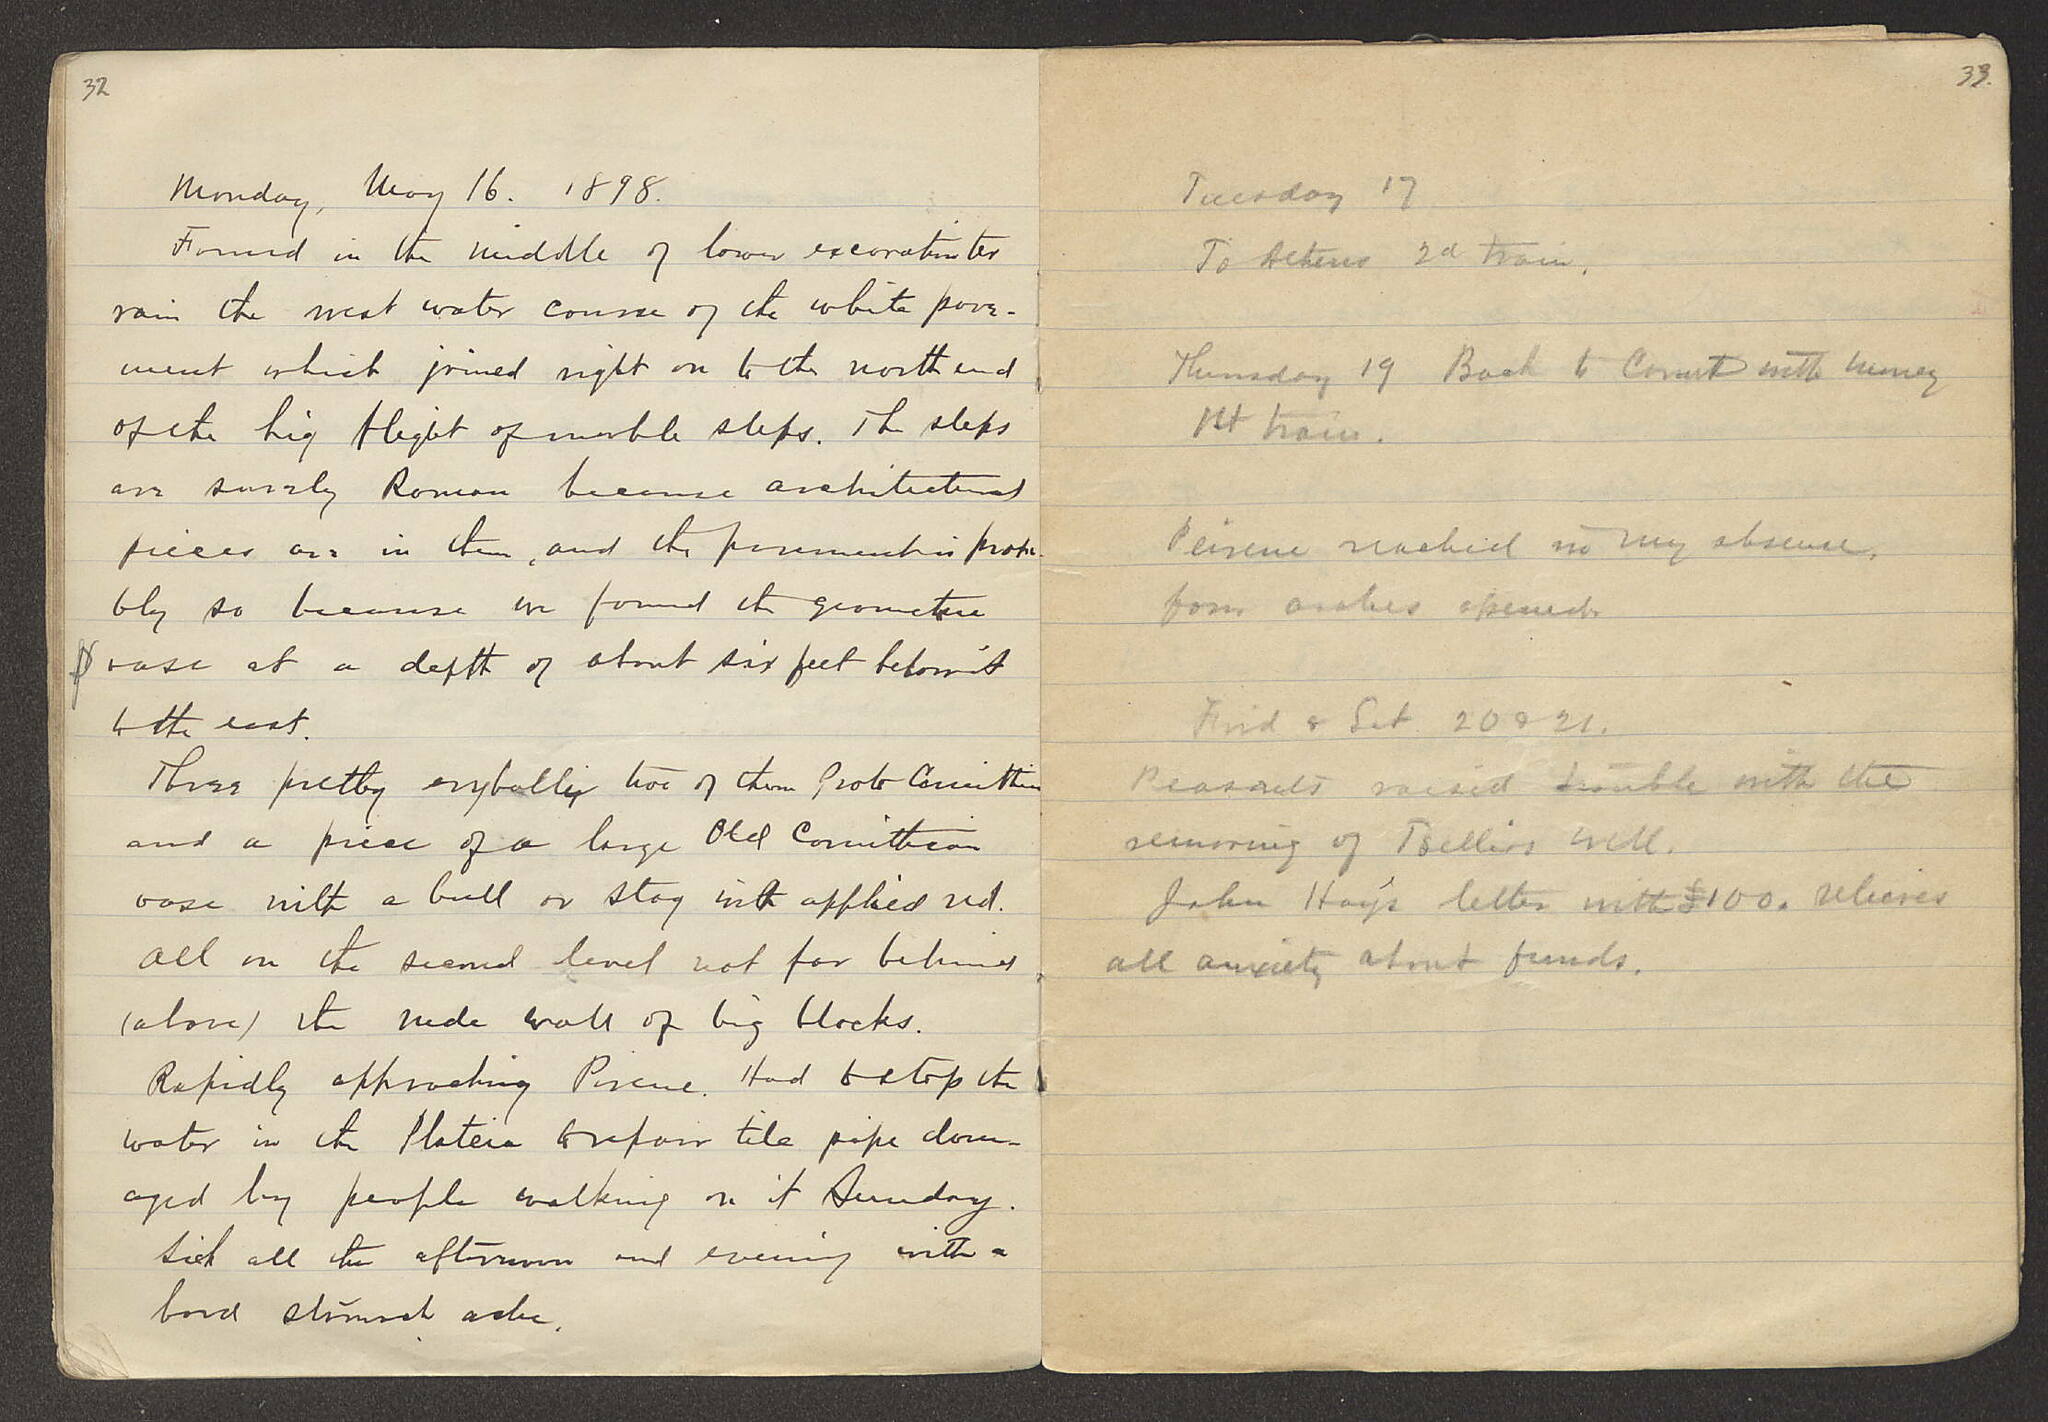 32
Monday, May 16. 1898.
Found in the middle of lower excavation ter
rain the west water course of the white pave-
ment which joined right on to the north end
of the big flight of marble steps. The steps
are surely Roman because architectural
pieces are in them, and the pavement is proba-
bly so because we found the geometric
vase at a depth of about six feet below it
to the east.
Three pretty aryballi two of them Proto Corinthian
and a piece of a large Old Corinthian
vase with a bull or stag with applied red.
All on the second level not far behind
(above) the rude wall of big blocks.
Rapidly approaching Pirene. Had to stop the
water in the Plateia to repair tile pipe dam-
aged by people walking on it Sunday.
Sick all the afternoon and evening with a
hard stomach ache.
33.
Tuesday 17
To Athens 2d train.
Thursday 19 Back to Corinth with money
1st train.
Peirene reached in my absence.
four arches opened.
Frid & Sat 20 & 21.
Peasants raised trouble with the
removing of Tsellios well.
John Hay's letter with £100. relieves
all anxiety about funds.